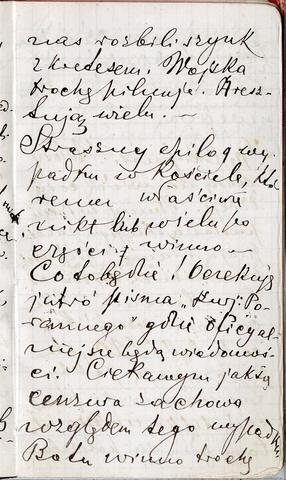 nas rozbili szynk
z kredesem. Wojska
trochę pilnują. Aresz-
tują wielu. —
Straszny epilog wy-
padku w Kościele, któ-
remu właściwie
nikt lub wielu po
części winno —
Co to będzie! Oczekuję
jutro pisma „Kurj. Po-
rannego" gdzie oficyal-
niejsze będą wiadomoś-
ci. Ciekawym jak się
cenzura zachowa
względem tego wypadku
Bo tu winno trochę